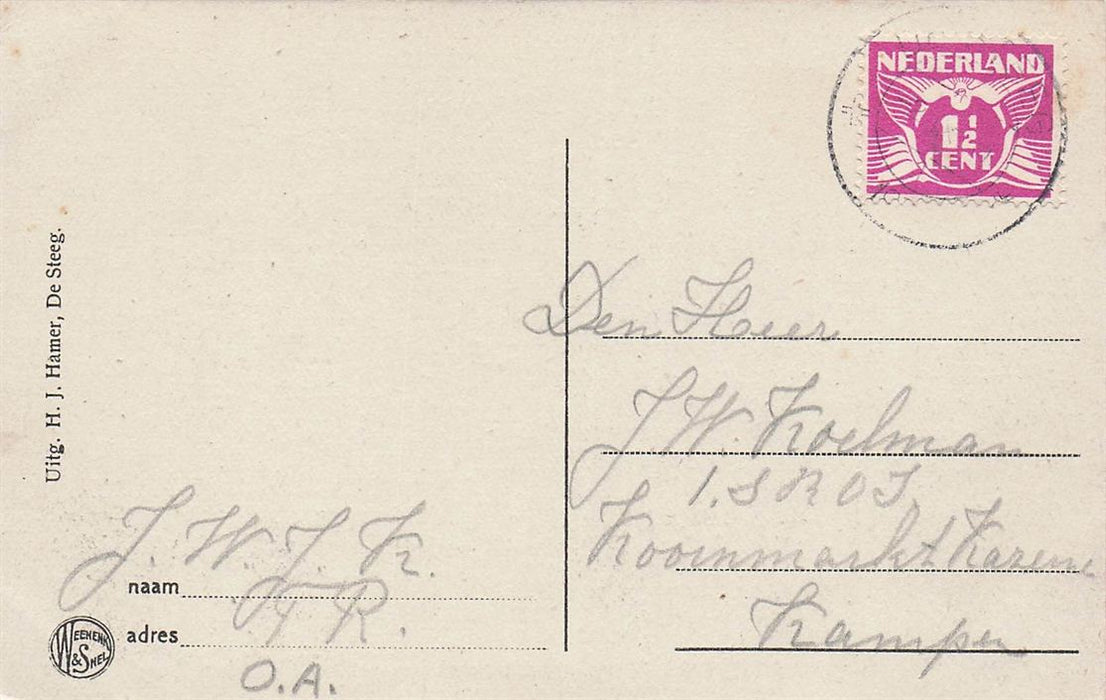 NEDERLAND
1½
CENT
Uitg. H. J. Hamer, De Steeg.
Den Heer
J. W. Koelman
1. S R O I
Koornmarkt Kazerne
Kampen
J. W. J. K.
naam
F R.
adres
O.A.
WEENENK & SNEL